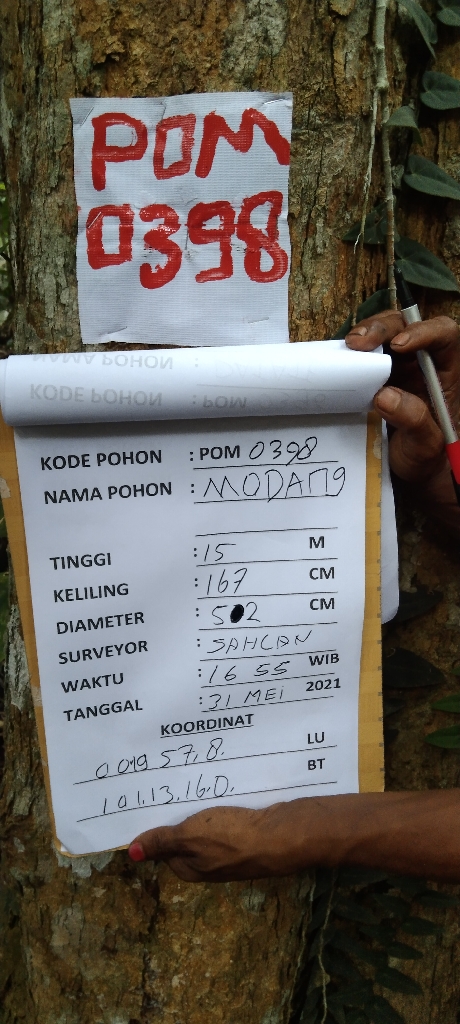 POM
0398
NAMA POHON :
KODE POHON : POM 0398
KODE POHON : POM 0398
NAMA POHON : MODANG
TINGGI : 15 M
KELILING : 167 CM
DIAMETER : 52 CM
SURVEYOR : SAHLAN
WAKTU : 16 55 WIB
TANGGAL : 31 MEI 2021
KOORDINAT
0 019 57.8. LU
101.13.16.0. BT